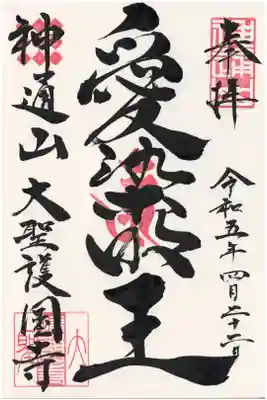 奉拝
令和五年四月二十二日
愛染明王
神通山 大聖護國寺